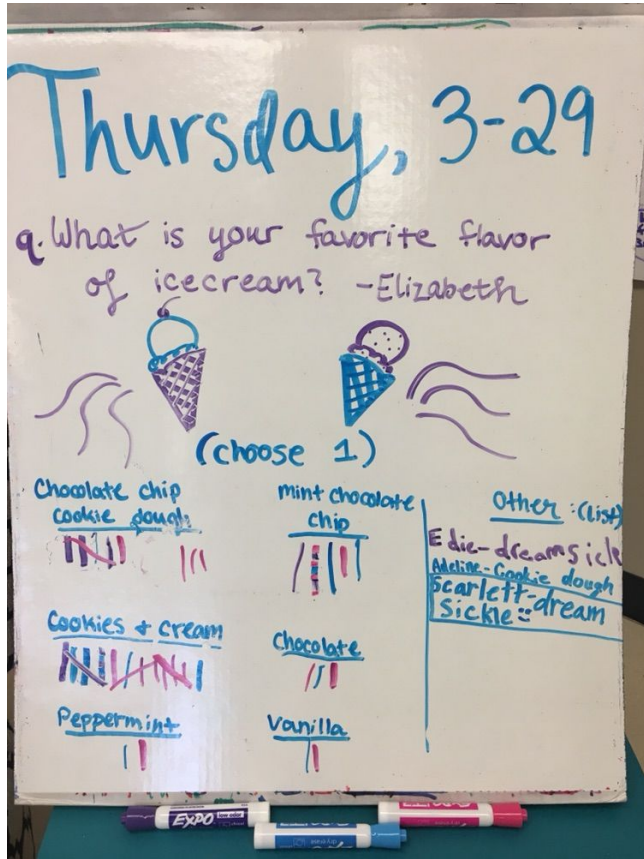 Thursday, 3-29
q. What is your favorite flavor
of icecream? -Elizabeth
(choose 1)
Chocolate chip
cookie dough
mint chocolate
chip
Other: (list)
Edie-dreamsicle
Adeline-Cookie dough
Scarlett-dream
Sickle
Cookies & cream
Chocolate
Peppermint
Vanilla
EXPO
low odor